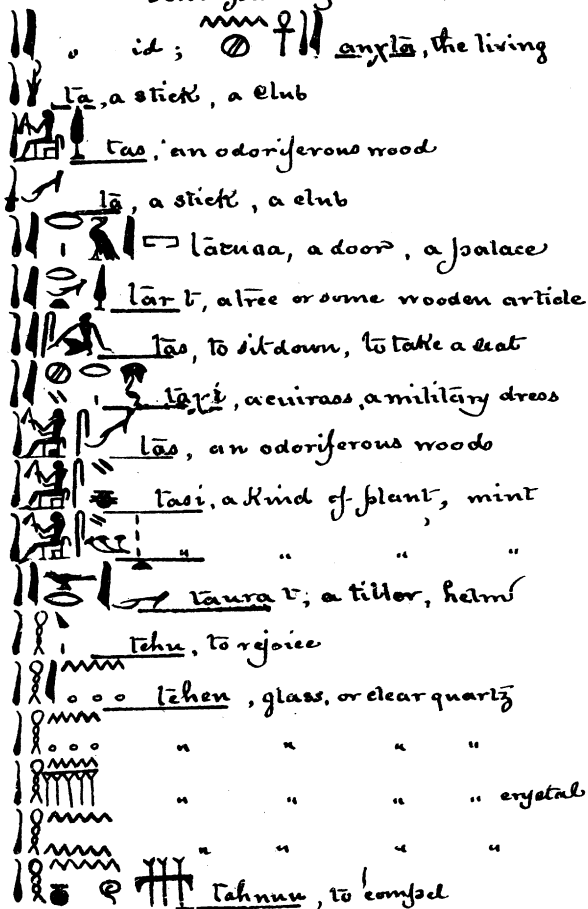 " id; anχtā, the living
tā, a stick, a club
tas, an odoriferous wood
tā, a stick, a club
tāruaa, a door, a palace
tār t, a tree or some wooden article
tās, to sit down, to take a seat
taχi, a cuirass, a military dress
tās, an odoriferous woods
tasi, a kind of plant, mint
" " " "
taura t; a tiller, helm
tehu, to rejoice
tehen, glass, or clear quartz
" " " "
" " " " crystal
" " " "
tahnuu, to compel